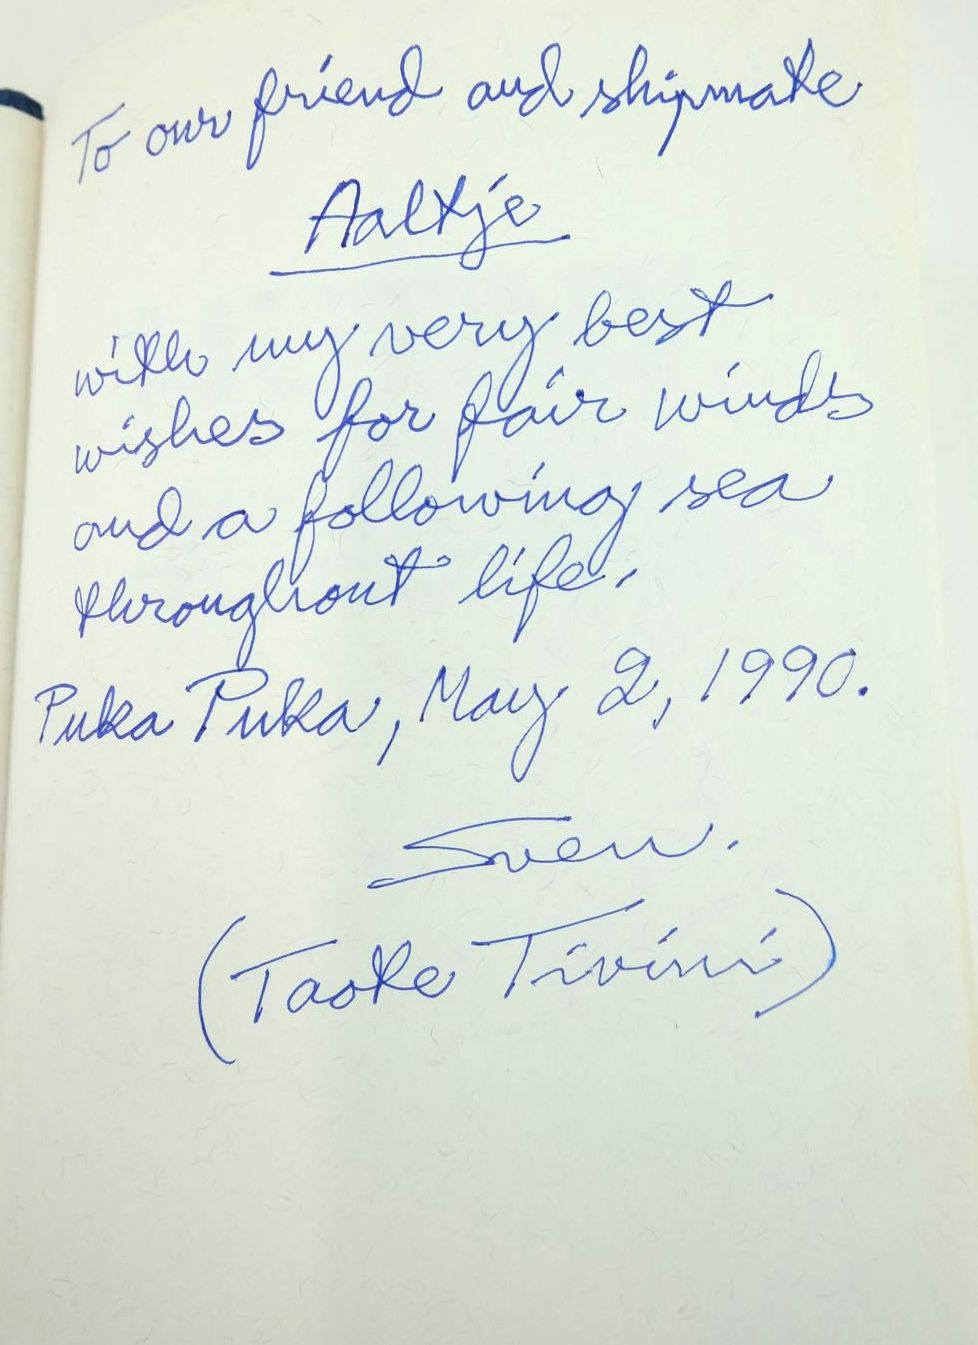 To our friend and shipmate
Aaltje
with my very best
wishes for fair winds
and a following sea
throughout life.
Puka Puka, May 2, 1990.
Sven.
(Taote Tivini)